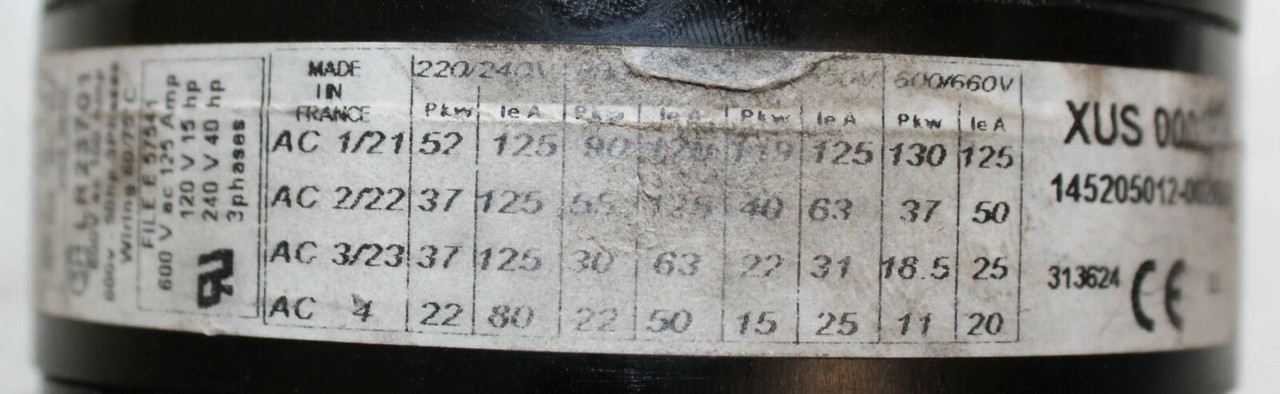 LR23701
Wiring 60/75°C
FILE E 57541
600 V ac 125 Amp
120 V 15 hp
240 V 40 hp
3phases
MADE IIN FRANCE
220/240V 600/660V
Pkw Ie A Pkw Ie A Pkw Ie A Pkw Ie A
AC 1/21 52 125 90 125 119 125 130 125
AC 2/22 37 125 55 125 40 63 37 50
AC 3/23 37 125 30 63 22 31 18.5 25
AC 4 22 80 22 50 15 25 11 20
XUS
313624 CE